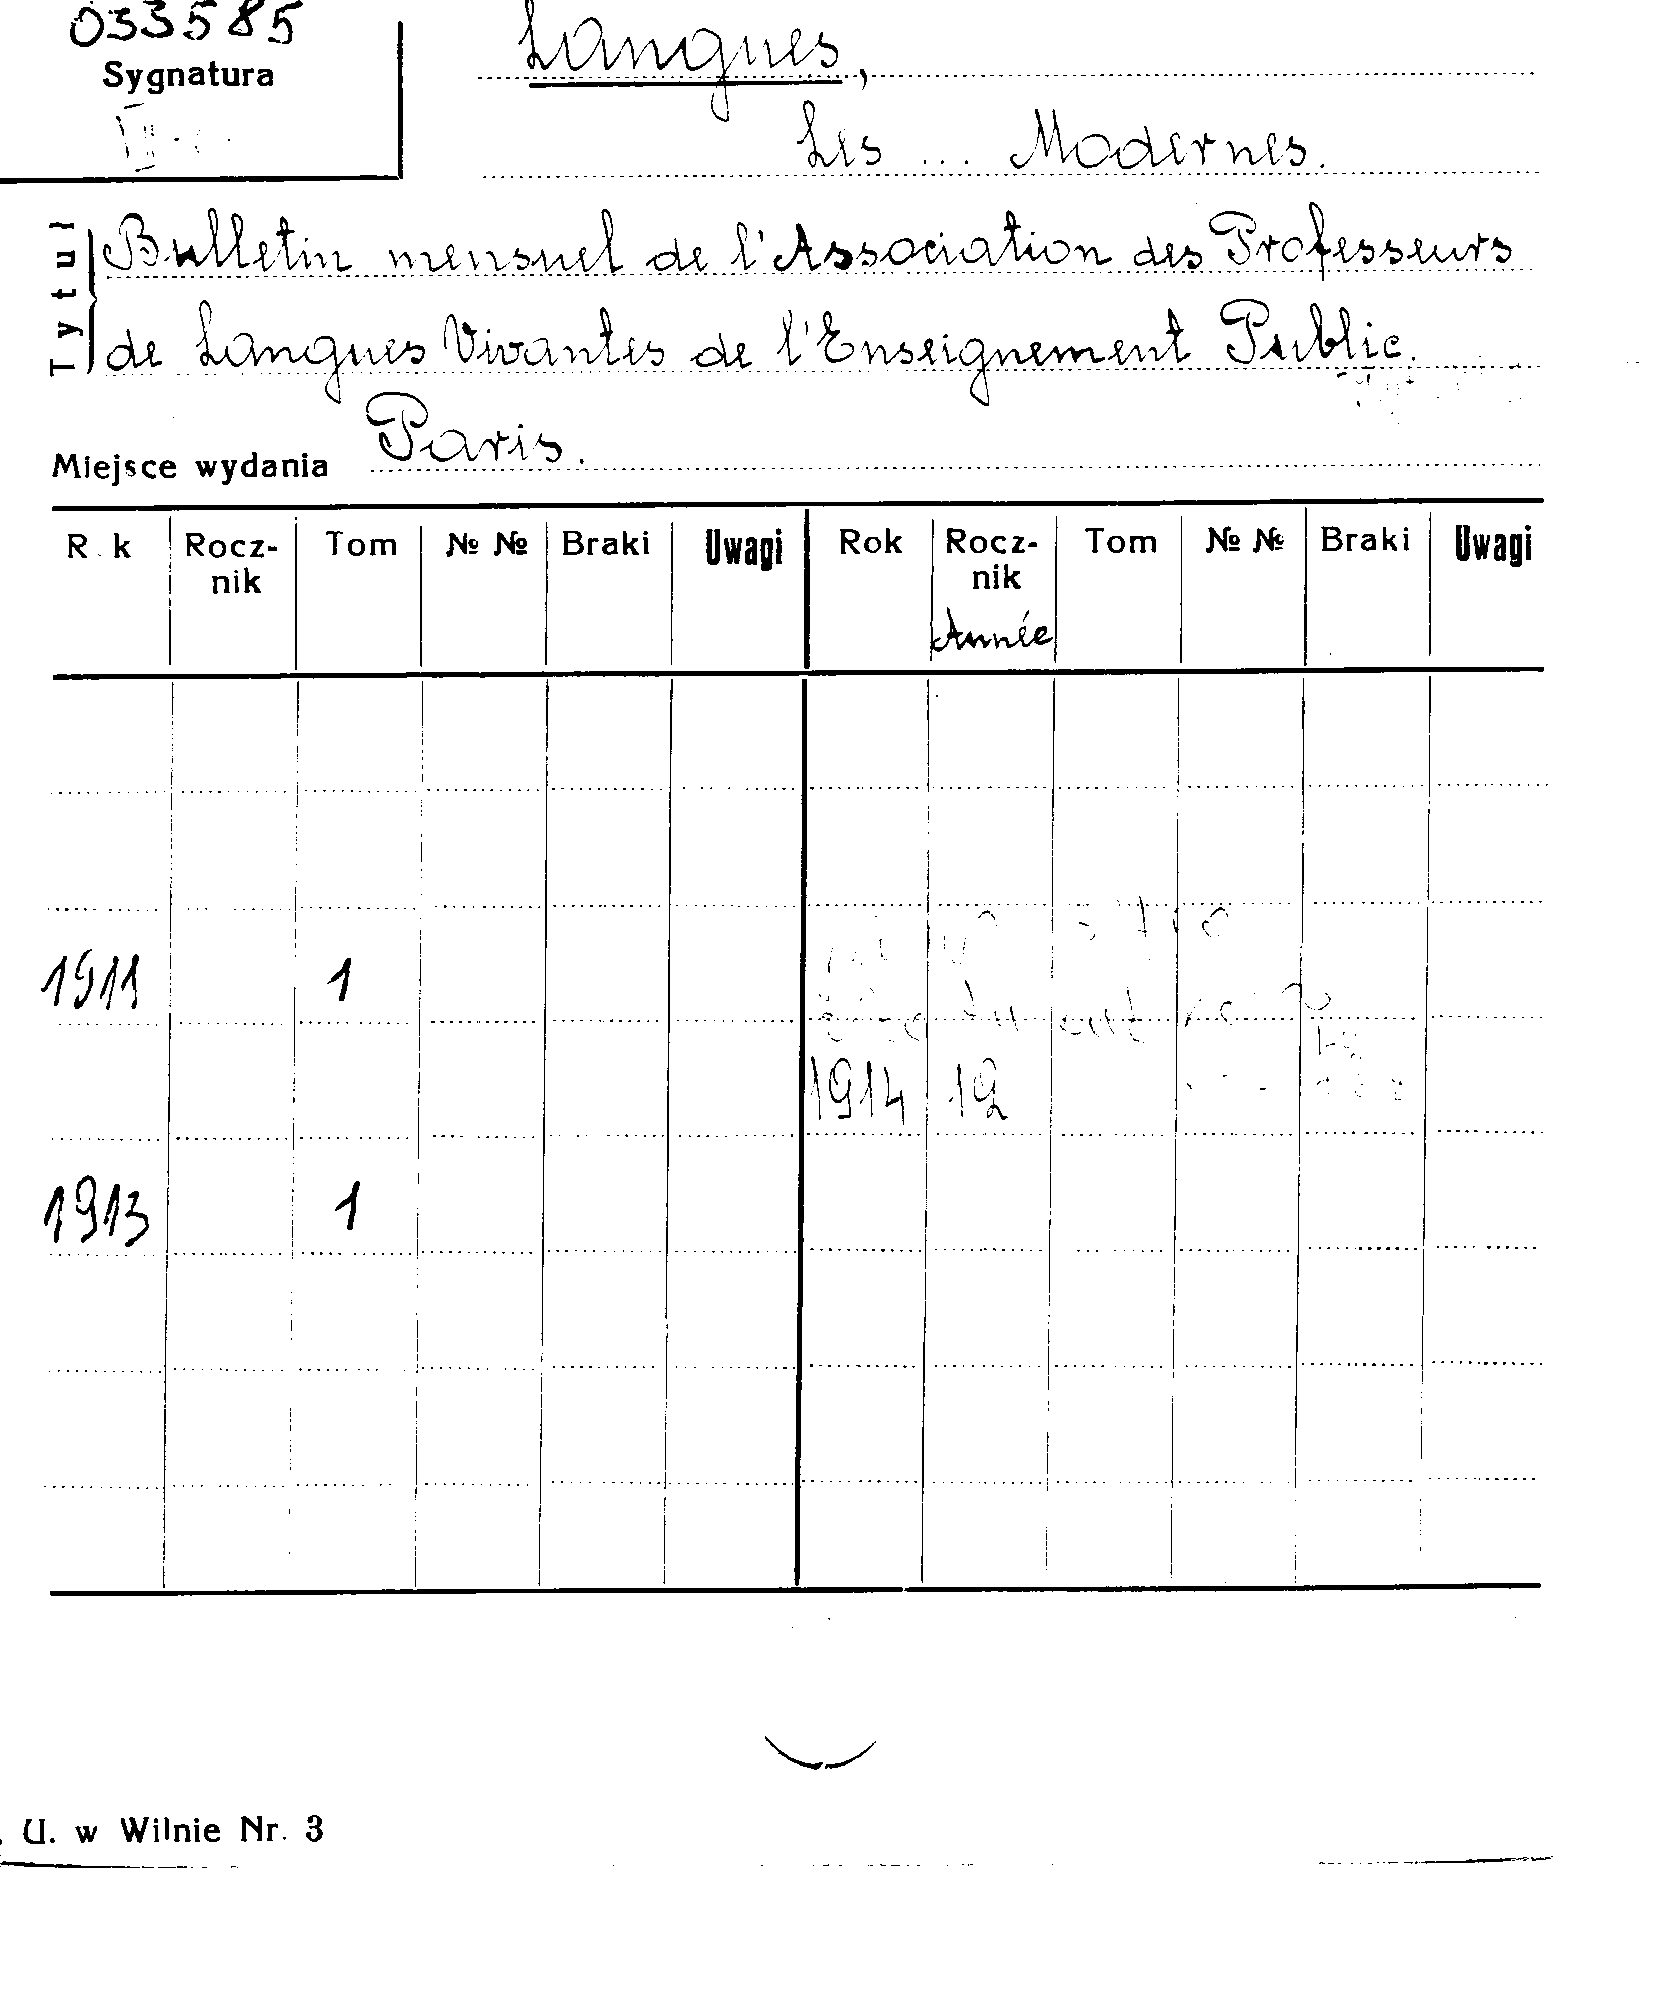 033585
Sygnatura
Langues,
Les ... Modernes.
Tytul
Bulletin mensuel de l'Association des Professeurs
de Langues Vivantes de l'Enseignement Public.
Miejsce wydania Paris.
R k Rocz- Tom № № Braki Uwagi Rok Rocz- Tom № № Braki Uwagi
nik nik
Année
1911 1
1914 12
1913 1
. U. w Wilnie Nr. 3